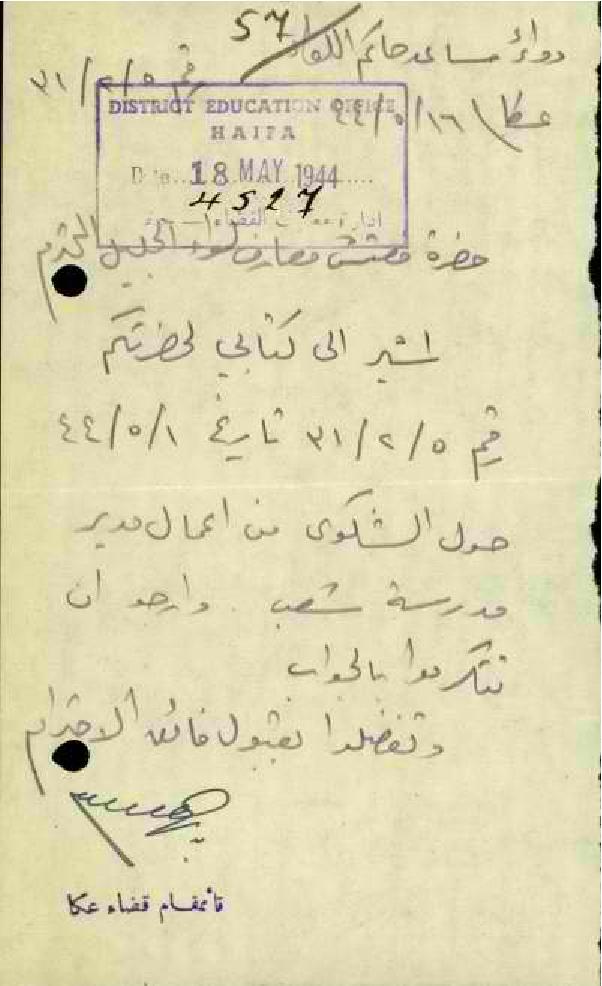 57
دوائر مساعد حاكم اللواء
رقم ٣١/٢/٥
عكا ١٦/٥/٤٤
DISTRICT EDUCATION OFFICE
HAIFA
Date 18 MAY 1944
4527
حضرة مفتش معارف لواء الجليل المحترم
اشير الى كتابي لحضرتكم
رقم ٣١/٢/٥ تاريخ ٤٤/٥/١
حول الشكوى من اعمال مدير
مدرسة شعب. وارجو ان
تتكرموا بالجواب
وتفضلوا بقبول فائق الاحترام
قائمقام قضاء عكا